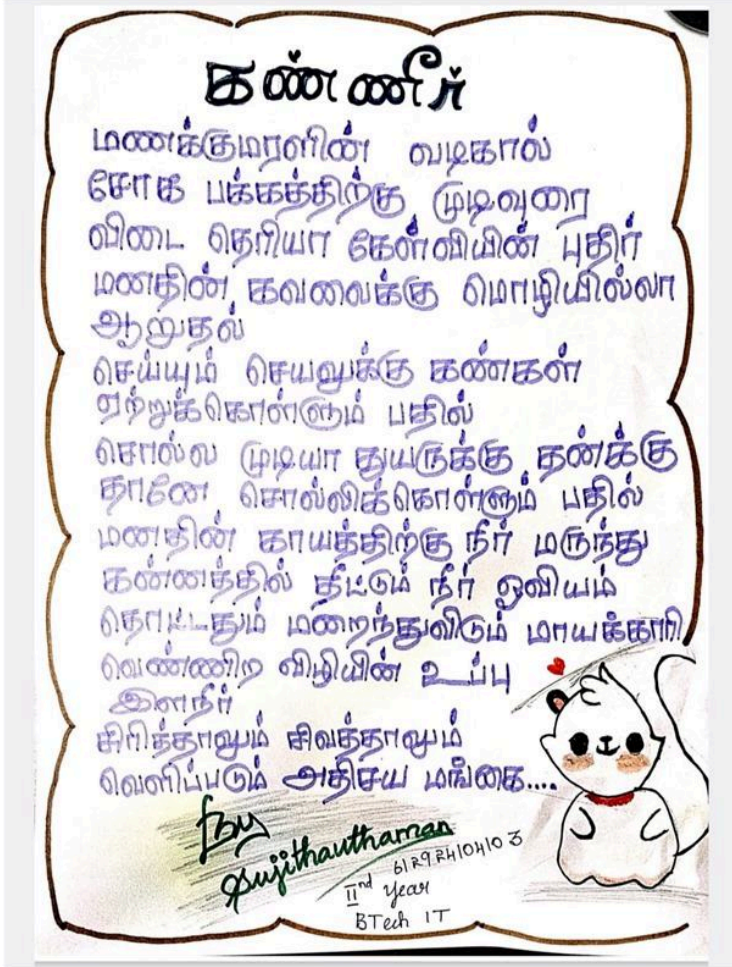 கண்ணீர்
மணக்குமரளின் வடிகால்
சோக பக்கத்திற்கு முடிவுரை
விடை தெரியா கேள்வியின் புதிர்
மனதின் கவலைக்கு மொழியில்லா
ஆறுதல்
செய்யும் செயலுக்கு கண்கள்
ஏற்றுக்கொள்ளும் பதில்
சொல்ல முடியா துயருக்கு தனக்கு
தானே சொல்லிக்கொள்ளும் பதில்
மனதின் காயத்திற்கு நீர் மருந்து
கன்னத்தில் தீட்டும் நீர் ஓவியம்
தொட்டதும் மறைந்துவிடும் மாயக்காரி
வெண்ணிற விழியின் உப்பு
இளநீர்
சிரித்தாலும் சிவத்தாலும்
வெளிப்படும் அதிசய மங்கை....
By
Sujithauthaman
612924104103
IInd year
BTech IT